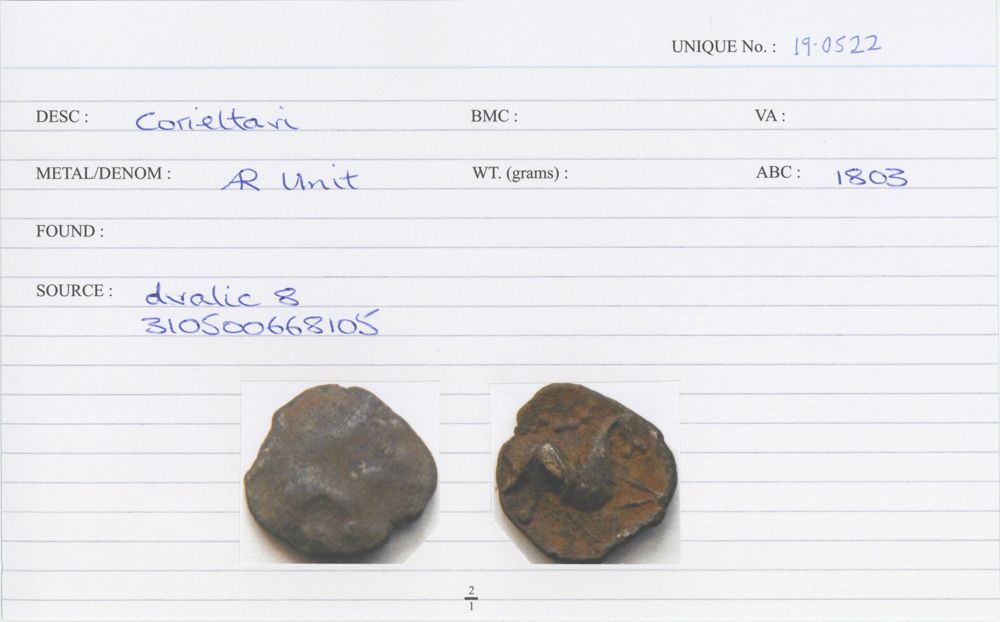 UNIQUE No. : 19.0522
DESC : Corieltavi BMC : VA :
METAL/DENOM : AR Unit WT. (grams) : ABC : 1803
FOUND :
SOURCE : dvalic 8
310500668105
2
1